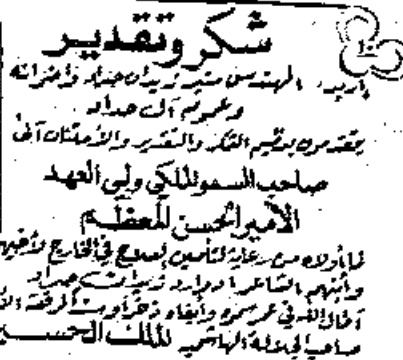 شكر وتقدير
المهندس متري زيدان حداد واخوانه
وعموم آل حداد
يتقدمون بعظيم الشكر والتقدير والامتنان الى
صاحب السمو الملكي ولي العهد
الأمير الحسن المعظم
لما أولاه من رعاية لتأمين لعلاج في الخارج لأخيهم
وابنهم الشاعر ادوارد زيدان حداد
أطال الله في عمر سموه وأبقاه ذخراً وسنداً لرفعة
صاحب الجلالة الهاشمية الملك الحسين